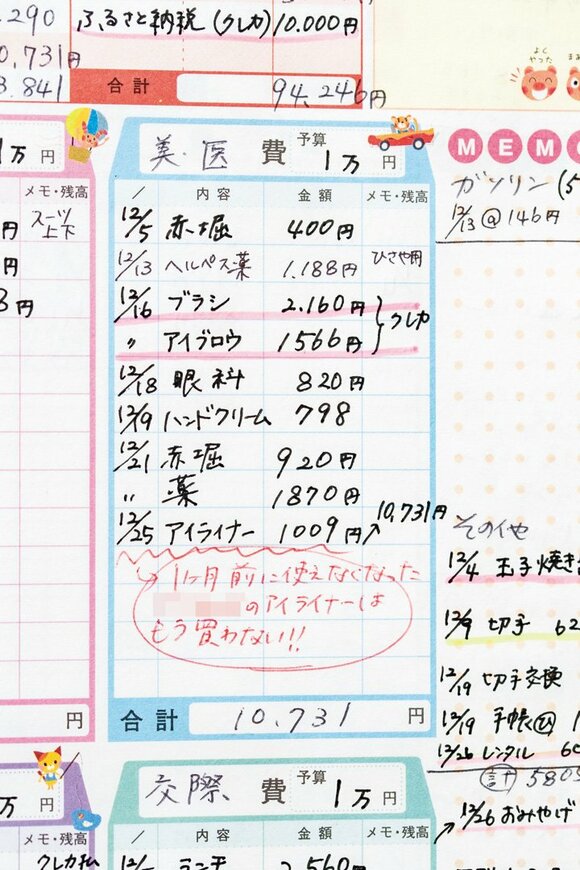 .290
ふるさと納税(クレカ) 10.000円
0,731円
3.841
合計 94,246円
よく
やった
1万円
メモ・残高
スーツ
上下
円
円
円
円
美・医 費 予算 1万円
/ 内容 金額 メモ・残高
12/5 赤堀 400円
12/13 ヘルペス薬 1.188円 ひさや用
12/16 ブラシ 2.160円
〃 アイブロウ 1566円 クレカ
12/18 眼科 820円
12/19 ハンドクリーム 798
12/21 赤堀 920円
〃 薬 1870円
12/25 アイライナー 1009円 10,731円
1ヶ月前に使えなくなった
のアイライナーは
もう買わない!!
合計 10.731 円
MEMO
ガソリン (5
12/13 @146円
その他
12/4 玉子焼き
12/9 切手 62
12/19 切手交換
12/19 手帳
12/26 レンタル
計 5805
12/26 おみやげ
万円
メモ・残高
クレカ払
交際 費 予算 1万円
/ 内容 金額 メモ・残高
ランチ 2.560円